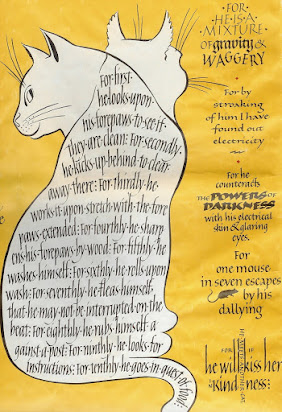 For first
he looks upon
his forepaws to see if
they are clean: For secondly
he kicks up behind to clear
away there: For thirdly he
works it upon stretch with the fore
paws extended: For fourthly he sharp
ens his forepaws by wood: For fifthly he
washes himself: For sixthly he rolls upon
wash: For seventhly he fleas himself,
that he may not be interrupted on the
beat: For eighthly he rubs himself a
gainst a post: For ninthly he looks for
instructions: For tenthly he goes in quest of food:
·FOR·
HE·IS·A
MIXTURE
of gravity &
WAGGERY
For by
stroaking
of him I have
found out
electricity
For he
counteracts
THE POWERS OF
DARKNESS
with his electrical
skin & glaring
eyes.
For
one mouse
in seven escapes
by his
dallying
FOR
he will kiss her
in kindness: